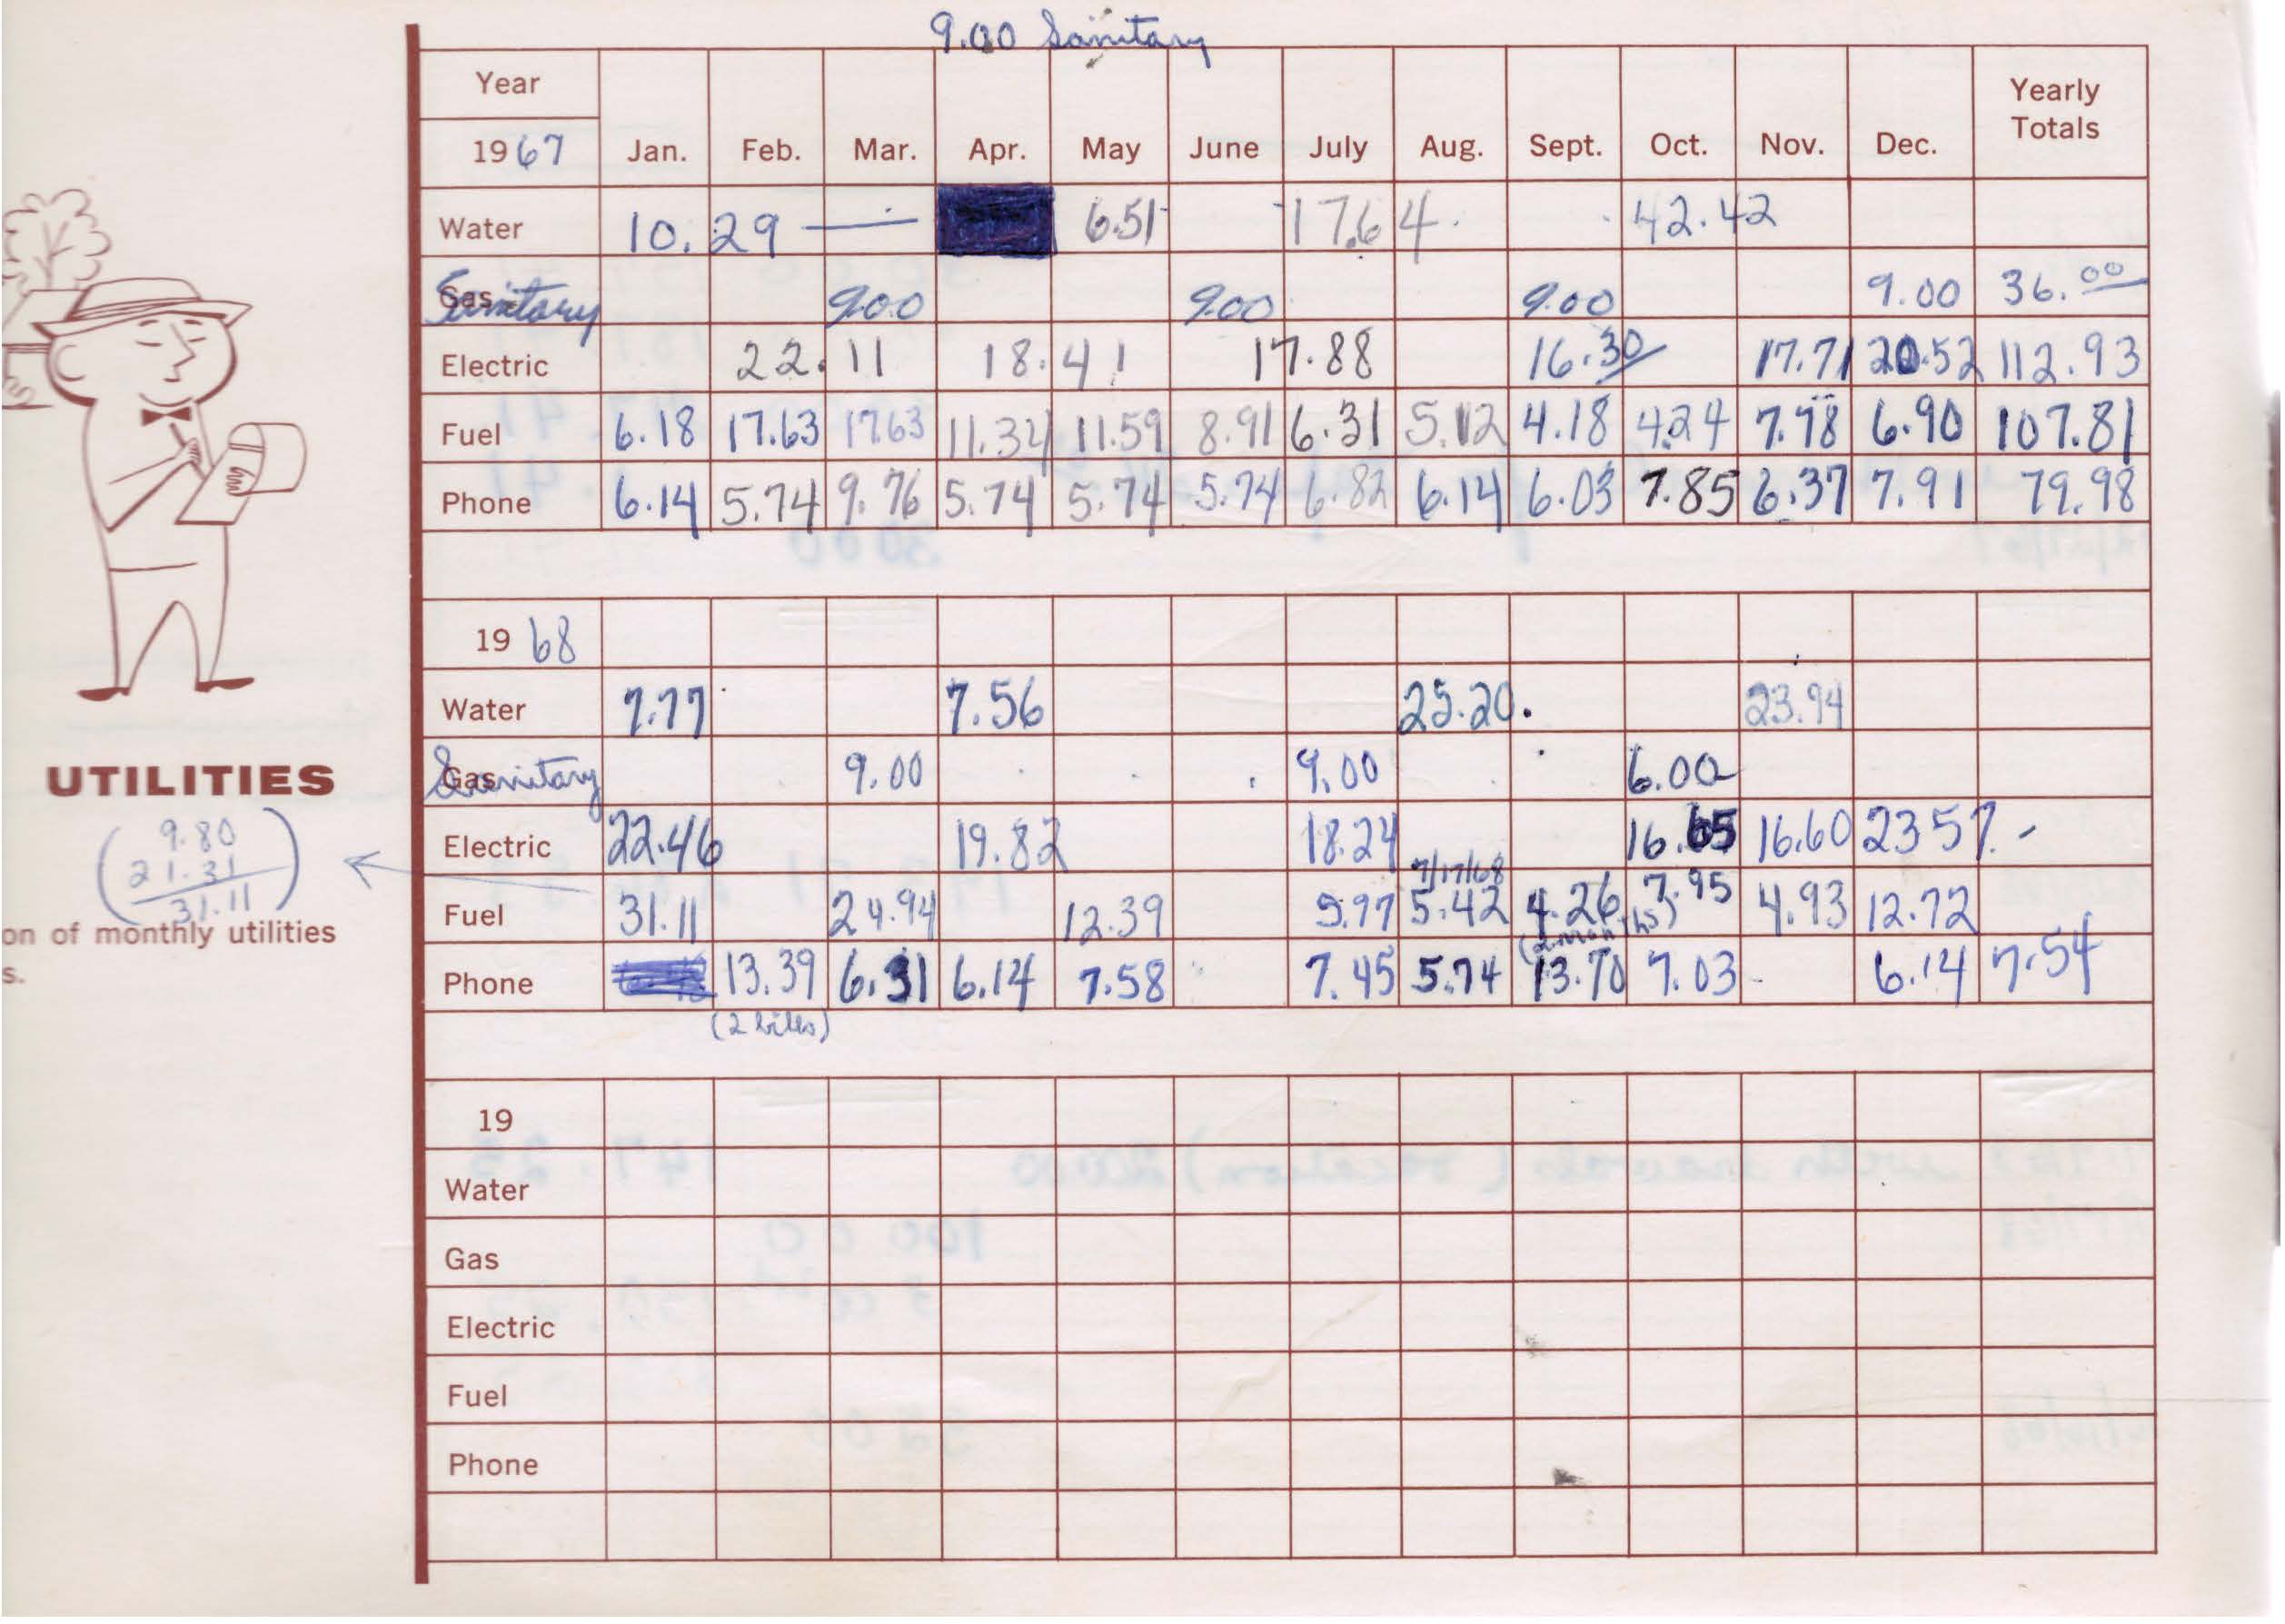 9.00 Sanitary
Year
Yearly Totals
1967 Jan. Feb. Mar. Apr. May June July Aug. Sept. Oct. Nov. Dec.
Water 10.29 — 6.51 17.64 42.42
Gas Sanitary 9.00 9.00 9.00 9.00 36.00
Electric 22.11 18.41 17.88 16.30 17.71 20.52 112.93
Fuel 6.18 17.63 17.63 11.34 11.59 8.91 6.31 5.12 4.18 4.24 7.78 6.90 107.81
Phone 6.14 5.74 9.76 5.74 5.74 5.74 6.82 6.14 6.03 7.85 6.37 7.91 79.98
1968
Water 7.77 7.56 25.20. 23.94
Gas Sanitary 9.00 9.00 6.00
Electric 22.46 19.82 18.24 16.65 16.60 23 57. -
7/17/68
Fuel 31.11 24.94 12.39 5.97 5.42 4.26 7.95 4.93 12.72
(2 months)
Phone 13.39 6.31 6.14 7.58 7.45 5.74 13.70 7.03 - 6.14 7.54
(2 bills)
UTILITIES
9.80
21.31
31.11
on of monthly utilities
s.
19
Water
Gas
Electric
Fuel
Phone